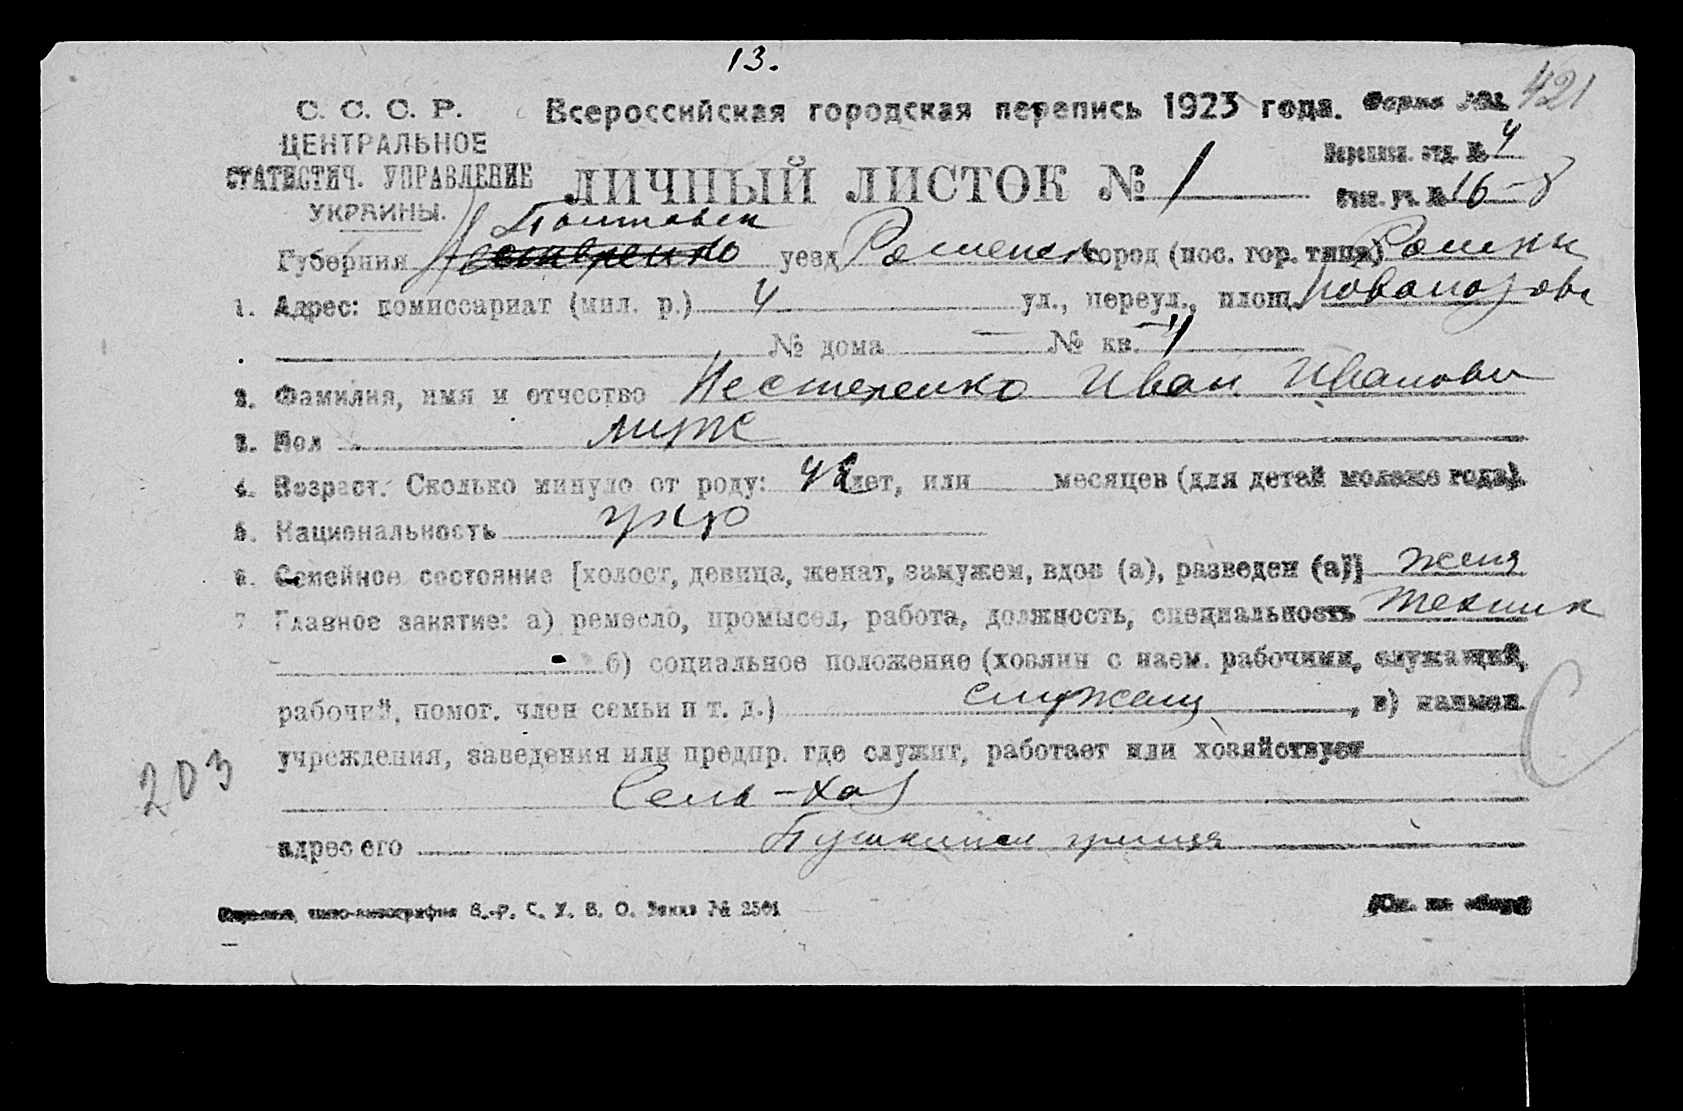 13.
421
С. С. С. Р.
Всероссийская городская перепись 1923 года. Форма
ЦЕНТРАЛЬНОЕ
СТАТИСТИЧ. УПРАВЛЕНИЕ
УКРАИНЫ.
ЛИЧНЫЙ ЛИСТОК № 1
Переписн. отд. № 4
Счис. уч. № 16-8
Полтавск
Губерния Нестеренко уезд Роменск город (пос. гор. типа) Ромны
1. Адрес: комиссариат (мил. р.) 4 ул., переул., площ.
№ дома — № кв. 4
2. Фамилия, имя и отчество Нестеренко Иван Иванович
3. Пол муж
4. Возраст. Сколько минуло от роду: лет, или месяцев (для детей моложе года).
5. Национальность укр
6. Семейное состояние [холост, девица, женат, замужем, вдов (а), разведен (а)]
7 Главное занятие: а) ремесло, промысел, работа, должность, специальность техник
б) социальное положение (хозяин с наем. рабочими, служащий,
рабочий, помог. член семьи и т. д.) служащ, в) наимен.
учреждения, заведения или предпр. где служит, работает или хозяйствует
203
Сель-хоз
адрес его Пушкинск улиця
типо-литография В.-Р. С. У. В. О. Заказ № 2501
(См. на обор)